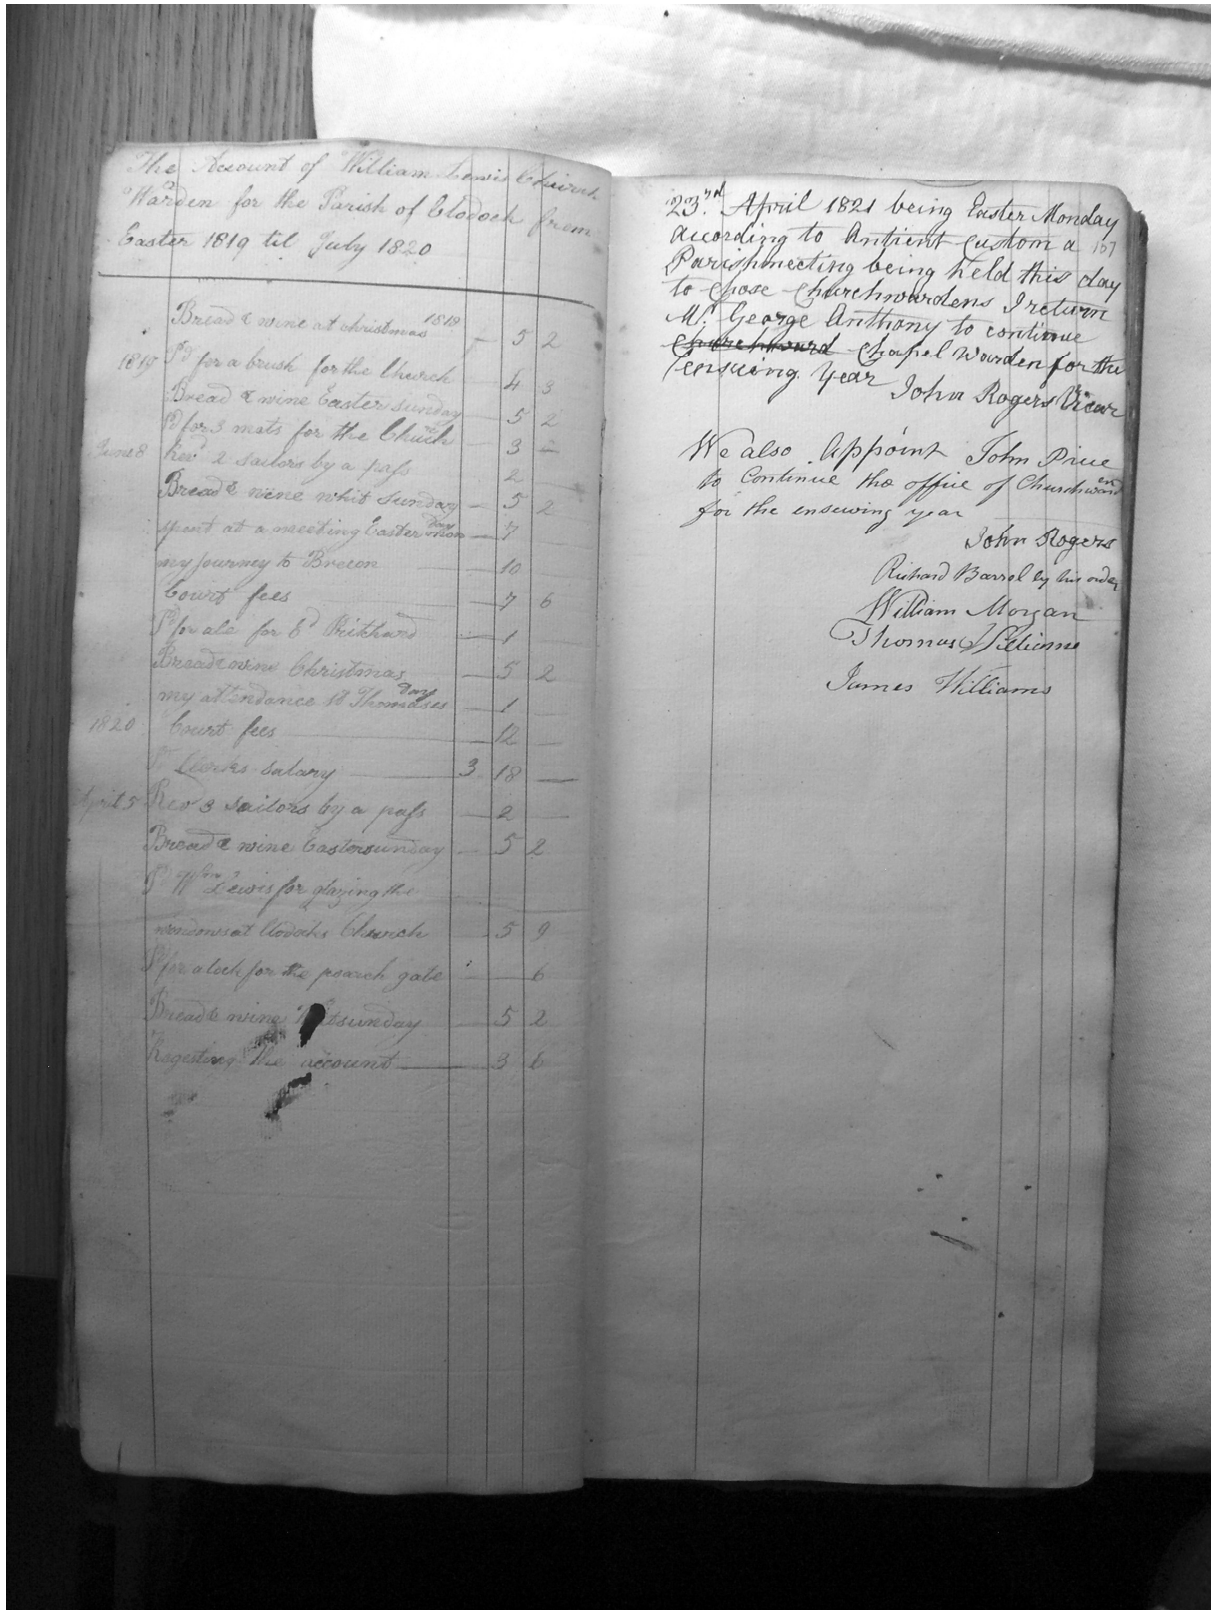 The Account of William Lewis Church
Warden for the Parish of Clodock from
Easter 1819 til July 1820
Bread & wine at christmas 1818 - 5 2
1819 Pd for a brush for the Church - 4 3
Bread & wine Easter sunday - 5 2
Pd for 3 mats for the Church - 3 -
June 8 Rev 2 sailors by a pass - 2 -
Bread & wine whit sunday - 5 2
spent at a meeting Easter mon day - 7 -
my Journey to Brecon - 10 -
Court fees - 7 6
Pd for ale for Ed Prichard - 1 -
Bread & wine Christmas - 5 2
my attendance St Thomases Day - 1 -
1820 Court fees - 12 -
Pd Clerks salary - 3 18 -
April 5 Rev 3 sailors by a pass - 2 -
Bread & wine Eastersunday - 5 2
Pd Wm Lewis for glazing the
windows at Clodocks Church - 5 9
Pd for a lock for the poarch gate - - 6
Bread & wine Whitsunday - 5 2
the account - 3 6
23rd April 1821 being Easter Monday
according to Antient Custom a 107
Parish meeting being held this day
to chose Churchwardens I return
Mr George Anthony to continue
Churchward Chapel Warden for the
ensuing Year John Rogers Vicar
We also Appoint John Price
to Continue the office of Churchwarden
for the ensewing year
John Rogers
Richard Barrol by his order
William Morgan
Thomas Williams
James Williams